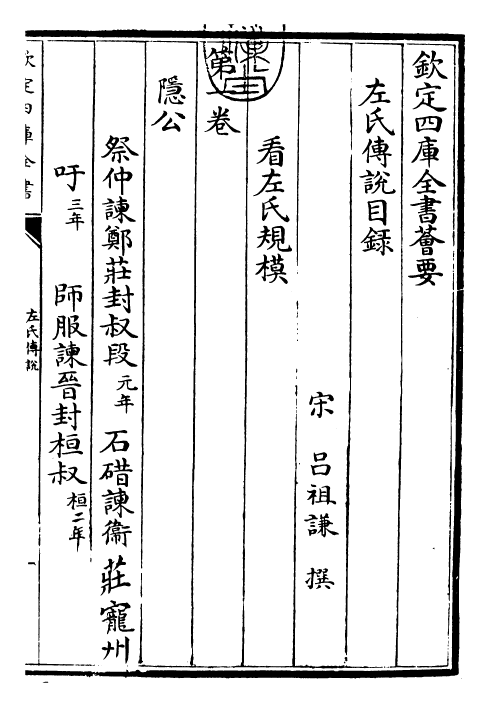 欽定四庫全書薈要
左氏傳說目錄
宋 呂祖謙 撰
看左氏規模
第一卷
隱公
祭仲諫鄭莊封叔段元年 石碏諫衞莊寵州
吁三年 師服諫晉封桓叔桓二年
欽定四庫全書
左氏傳說
一